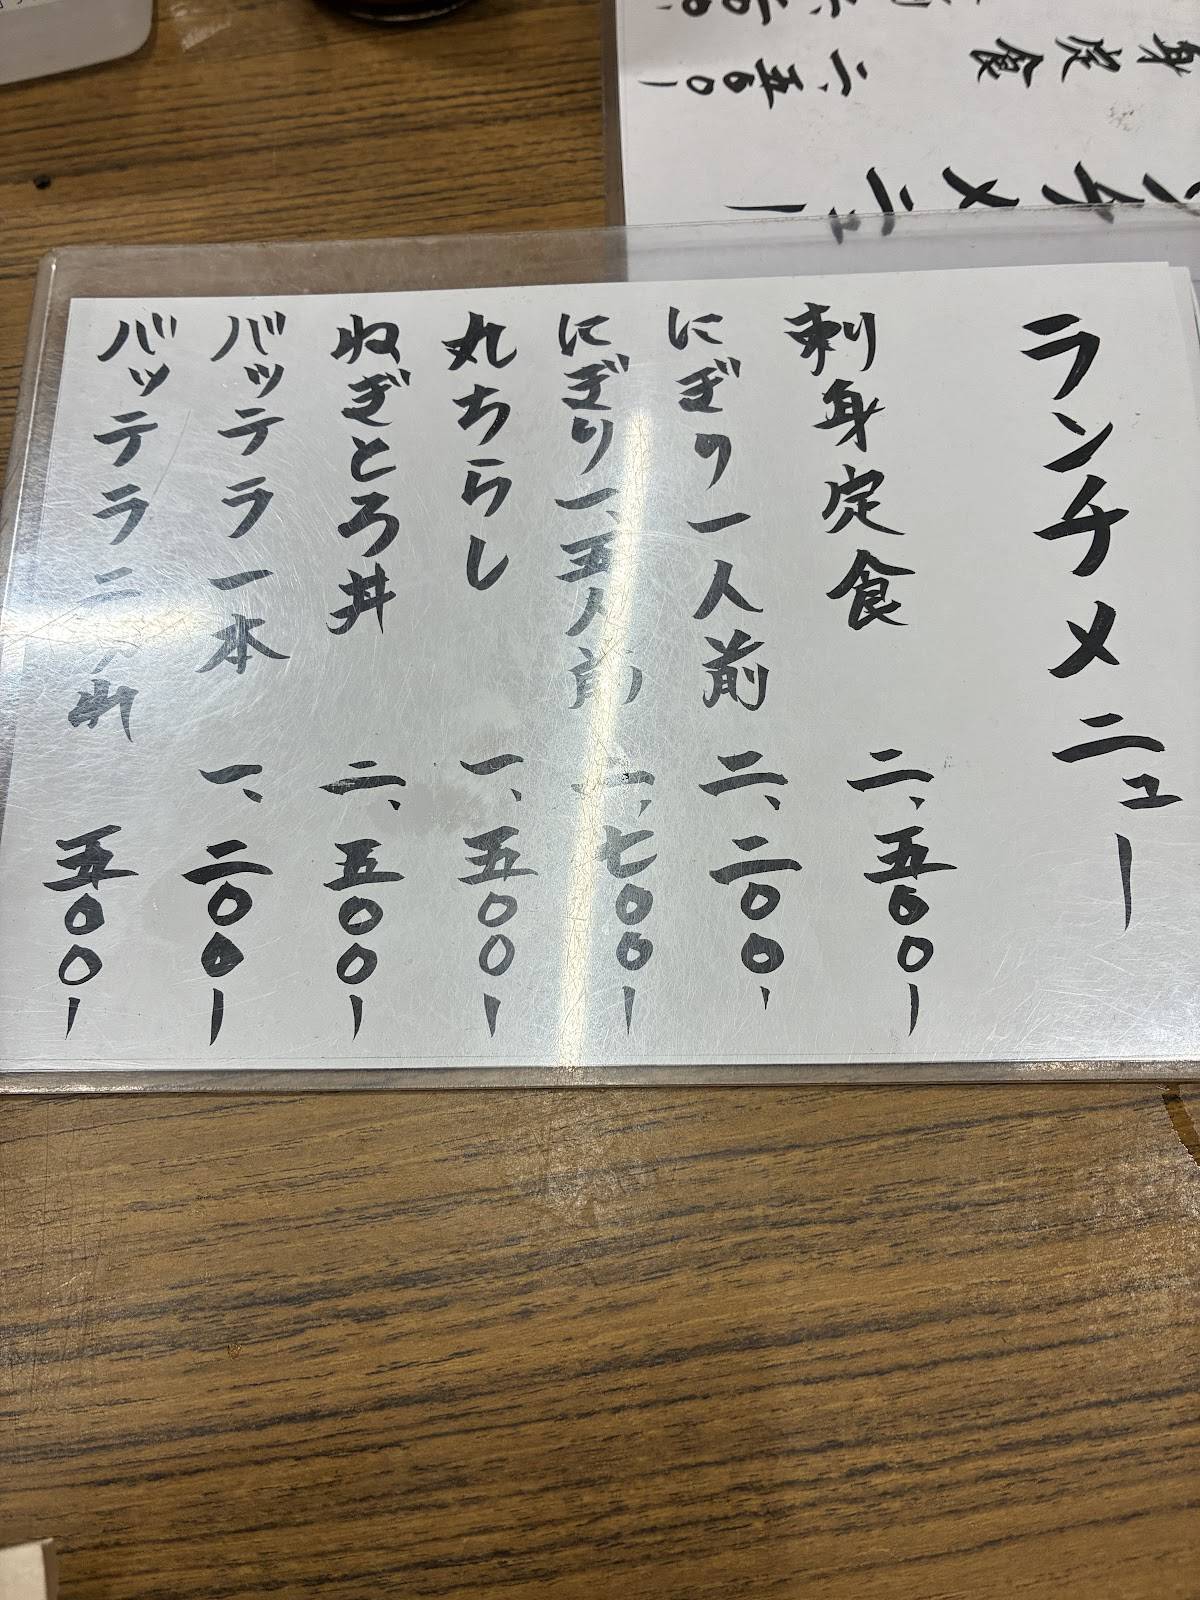 ランチメニュー
刺身定食 二、五〇〇ー
にぎり一人前 二、二〇〇ー
にぎり一、五人前 二、七〇〇ー
丸ちらし 一、五〇〇ー
ねぎとろ丼 二、五〇〇ー
バッテラ一本 一、二〇〇ー
バッテラ二 五〇〇ー
ンチメニュー
身定食 二、五〇〇ー